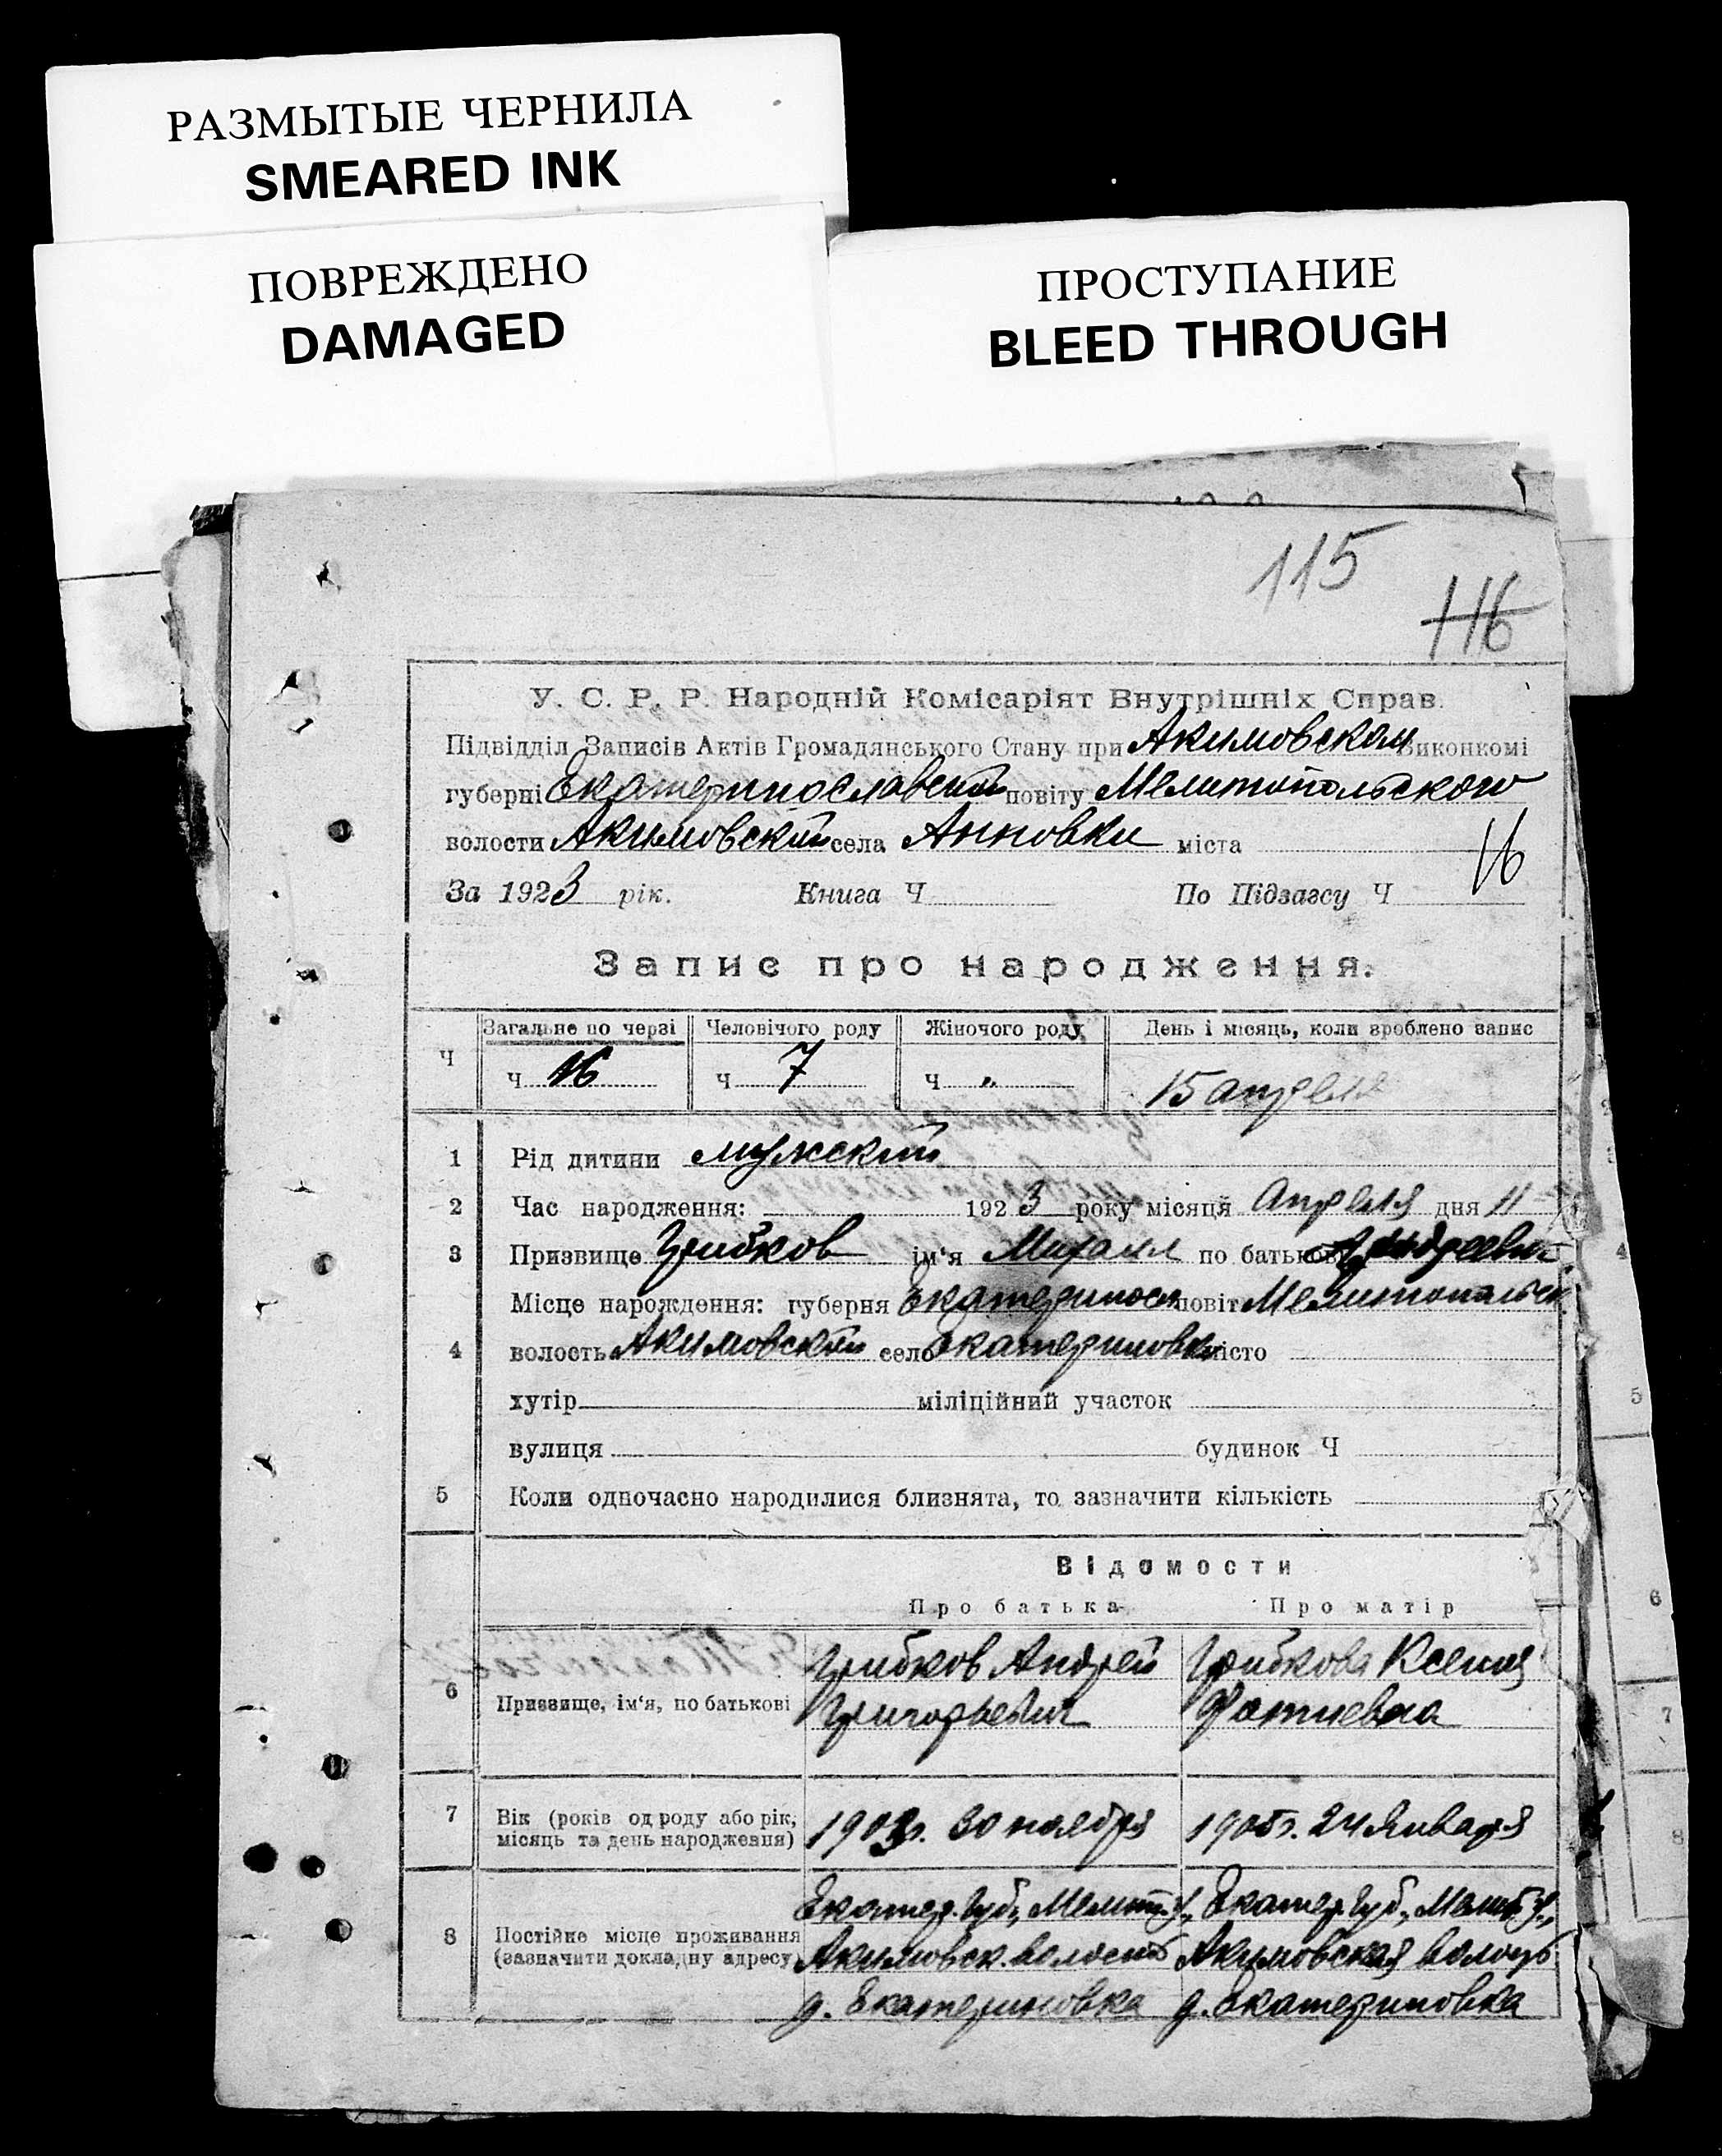 РАЗМЫТЫЕ ЧЕРНИЛА
SMEARED INK
ПОВРЕЖДЕНО
DAMAGED
ПРОСТУПАНИЕ
BLEED THROUGH
115
116
У. С. Р. Р. Народній Комісаріят Внутрішніх Справ.
Підвідділ Записів Актів Громадянського Стану при Акимовском виконкомі
губерні Екатеринославской повіту Мелитопольского
волости Акимовской села Анновки міста
16
За 1923 рік. Книга Ч По Підзагсу Ч
Запис про народження.
Ч Загальне по черзі Человічого роду Жіночого роду День і місяць, коли зроблено запис
Ч 16 Ч 7 Ч „ 15 апреля
1 Рід дитини мужский
2 Час народження: 1923 року місяця Апреля дня 11
3 Призвище Грибков ім'я Михаил по батькові Андреевич
Місце народження: губерня Екатериносл повіт Мелитопольск.
4 волость Акимовской село Екатериновка місто
хутір міліційний участок
вулиця будинок Ч
5 Коли одночасно народилися близнята, то зазначити кількість
Відомости
Про батька Про матір
Грибков Андрей Грибкова Ксения
6 Призвище, ім'я, по батькові Григорьевич Фотиевна
7 Вік (років од роду або рік, місяць та день народження) 1903г. 30 ноября 1905г. 24 Января
Екатер. Губ., Мелит. у., Екатер. Губ., Мелит. у.,
8 Постійне місце проживання (зазначити докладну адресу) Акимовск. волость Акимовская волость
д. Екатериновка д. Екатериновка